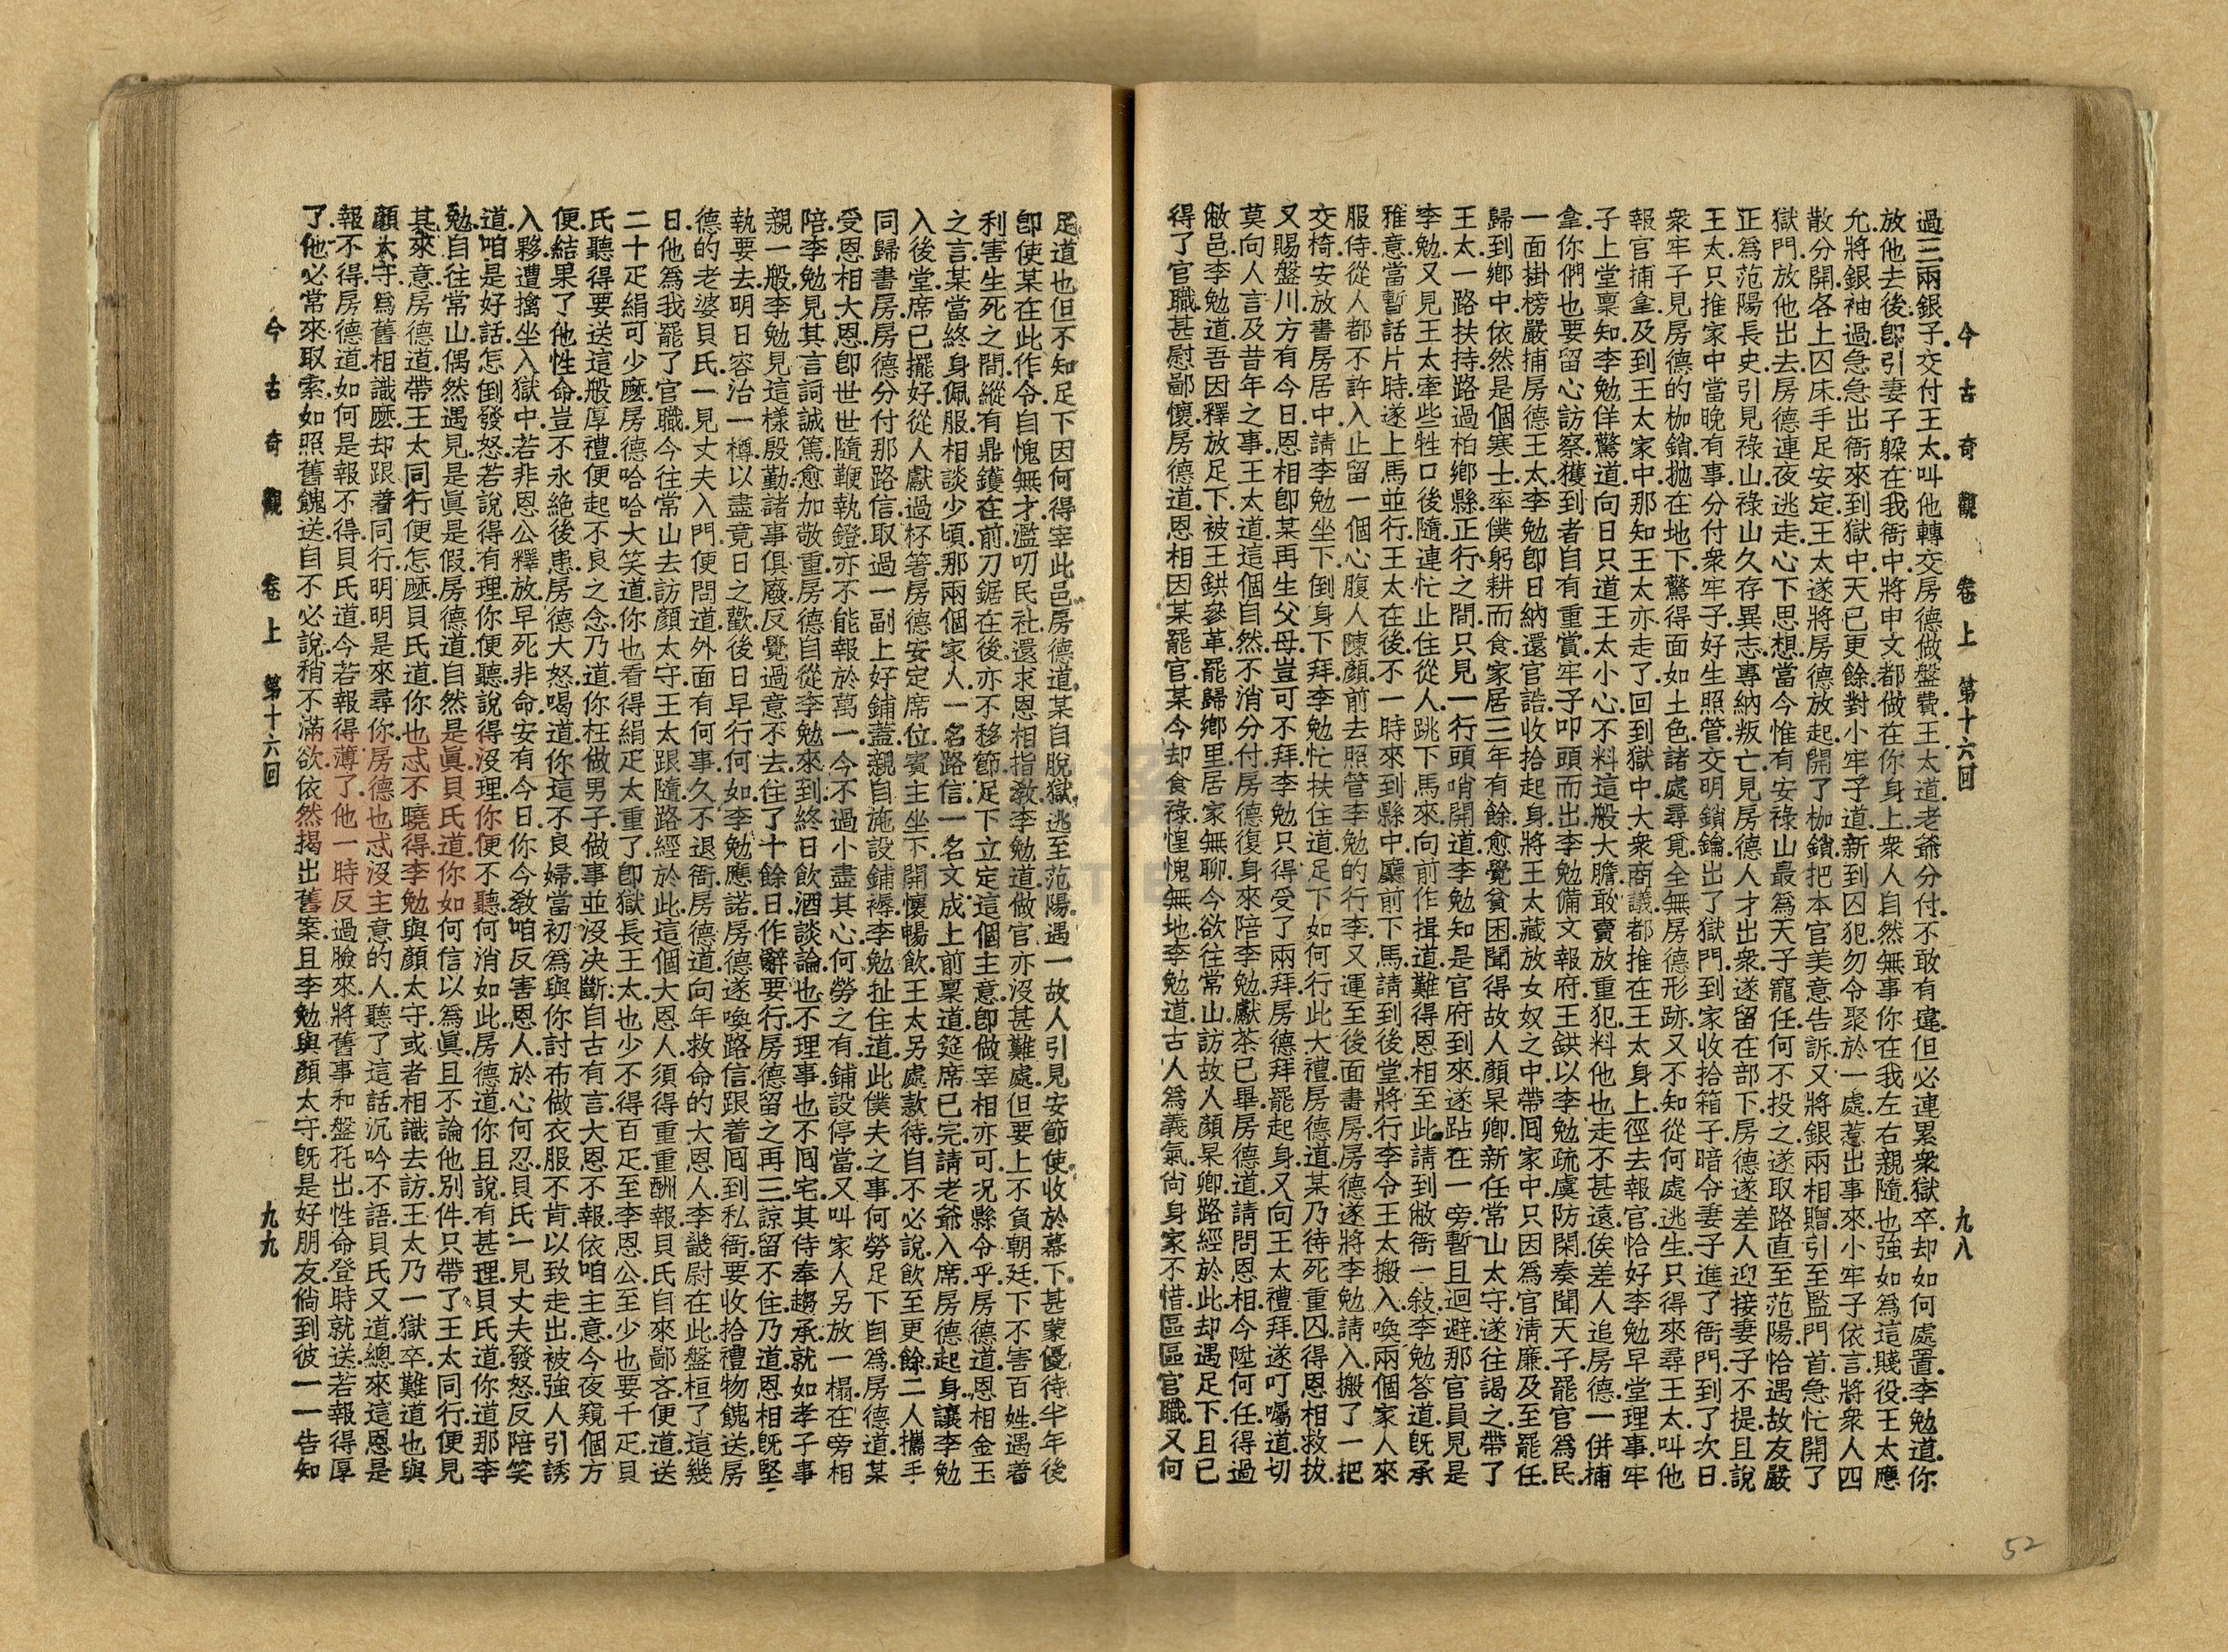 今古奇觀 卷上 第十六回 九八
過三兩銀子.交付王太.叫他轉交房德做盤費.王太道.老爺分付.不敢有違.但必連累衆獄卒.却如何處置.李勉道.你
放他去後.卽引妻子躱在我衙中.將申文都做在你身上.衆人自然無事.你在我左右親隨.也強如爲這賤役.王太應
允.將銀袖過.急急出衙.來到獄中.天已更餘.對小牢子道.新到囚犯.勿令聚於一處.惹出事來.小牢子依言.將衆人四
散分開.各上囚床.手足安定.王太遂將房德放起.開了枷鎖.把本官美意告訴.又將銀兩相贈.引至監門首.急忙開了
獄門.放他出去.房德連夜逃走.心下思想.當今惟有安祿山最爲天子寵任.何不投之.遂取路直至范陽.恰遇故友嚴
正爲范陽長史.引見祿山.祿山久存異志.專納叛亡.見房德人才出衆.遂留在部下.房德遂差人迎接妻子不提.且說
王太只推家中當晚有事.分付衆牢子好生照管.交明鎖鑰.出了獄門.到家收拾箱子.暗令妻子進了衙門.到了次日.
衆牢子見房德的枷鎖拋在地下.驚得面如土色.諸處尋覓.全無房德形跡.又不知從何處逃生.只得來尋王太.叫他
報官捕拿.及到王太家中.那知王太亦走了.回到獄中.大衆商議.都推在王太身上.徑去報官.恰好李勉早堂理事.牢
子上堂稟知.李勉佯驚道.向日只道王太小心.不料這般大膽.敢賣放重犯.料他也走不甚遠.俟差人追房德一併捕
拿.你們也要留心訪察.獲到者自有重賞.牢子叩頭而出.李勉備文報府.王鉷以李勉疏虞防閑.奏聞天子.罷官爲民.
一面掛榜嚴捕房德王太.李勉卽日納還官誥.收拾起身.將王太藏放女奴之中.帶囘家中.只因爲官淸廉.及至罷任.
歸到鄉中.依然是個寒士.率僕躬耕而食.家居三年有餘.愈覺貧困.聞得故人顏杲卿新任常山太守.遂往謁之.帶了
王太.一路扶持.路過柏鄉縣.正行之間.只見一行頭哨開道.李勉知是官府到來.遂跕在一旁.暫且迴避.那官員見是
李勉.又見王太牽些牲口後隨.連忙止住從人.跳下馬來.向前作揖道.難得恩相至此.請到敝衙一敍.李勉答道.旣承
雅意.當暫話片時.遂上馬並行.王太在後.不一時來到縣中廳前下馬.請到後堂.將行李令王太搬入.喚兩個家人來
服侍.從人都不許入.止留一個心腹人陳顏前去照管李勉的行李.又運至後面書房.房德遂將李勉請入.搬了一把
交椅.安放書房居中.請李勉坐下.倒身下拜.李勉忙扶住道.足下如何行此大禮.房德道.某乃待死重囚.得恩相救拔.
又賜盤川.方有今日.恩相卽某再生父母.豈可不拜.李勉只得受了兩拜.房德拜罷起身.又向王太禮拜.遂叮囑道.切
莫向人言及昔年之事.王太道.這個自然.不消分付.房德復身來陪李勉.獻茶已畢.房德道.請問恩相.今陞何任.得過
敝邑.李勉道.吾因釋放足下.被王鉷參革.罷歸鄉里.居家無聊.今欲往常山訪故人顏杲卿.路經於此.却遇足下.且已
得了官職.甚慰鄙懷.房德道.恩相因某罷官.某今却食祿.惶愧無地.李勉道.古人爲義氣尙身家不惜.區區官職.又何
足道也.但不知足下因何得宰此邑.房德道.某自脫獄.逃至范陽.遇一故人.引見安節使.收於幕下.甚蒙優待.半年後
卽使某在此作令.自愧無才.濫叨民社.還求恩相指教.李勉道.做官亦沒甚難處.但要上不負朝廷.下不害百姓.遇着
利害生死之間.縱有鼎鑊在前.刀鋸在後.亦不移節.足下立定這個主意.卽做宰相亦可.况縣令乎.房德道.恩相金玉
之言.某當終身佩服.相談少頃.那兩個家人.一名路信.一名文成.上前稟道.筵席已完.請老爺入席.房德起身.讓李勉
入後堂.席已擺好.從人獻過杯箸.房德安定席位.賓主坐下.開懷暢飲.王太另處款待.自不必說.飲至更餘.二人攜手
同歸書房.房德分付那路信.取過一副上好鋪蓋.親自施設鋪褥.李勉扯住道.此僕夫之事.何勞足下自爲.房德道.某
受恩相大恩.卽世世隨鞭執鐙.亦不能報於萬一.今不過小盡其心.何勞之有.鋪設停當.又叫家人另放一榻在旁相
陪.李勉見其言詞誠篤.愈加敬重.房德自從李勉來到.終日飲酒談論.也不理事.也不囘宅.其侍奉趨承.就如孝子事
親一般.李勉見這樣殷勤.諸事俱廢.反覺過意不去.住了十餘日.作辭要行.房德留之再三.諒留不住.乃道.恩相旣堅
執要去.明日容治一樽.以盡竟日之歡.後日早行何如.李勉應諾.房德遂喚路信跟着囘到私衙.要收拾禮物餽送.房
德的老婆貝氏.一見丈夫入門.便問道.外面有何事.久不退衙.房德道.向年救命的大恩人李畿尉在此.盤桓了這幾
日.他爲我罷了官職.今往常山去訪顏太守.王太跟隨.路經於此.這個大恩人.須得重重酬報.貝氏自來鄙吝.便道.送
二十疋絹可少麽.房德哈哈大笑道.你也看得絹疋太重了.卽獄長王太也少不得百疋.至李恩公至少也要千疋.貝
氏聽得要送這般厚禮.便起不良之念.乃道.你枉做男子.做事並沒决斷.自古有言.大恩不報.依咱主意.今夜窺個方
便.結果了他性命.豈不永絕後患.房德大怒.喝道.你這不良婦.當初爲與你討布做衣服不肯.以致走出.被強人引誘
入夥.遭擒坐入獄中.若非恩公釋放.早死非命.安有今日.你今教咱反害恩人.於心何忍.貝氏一見丈夫發怒.反陪笑
道.咱是好話.怎倒發怒.若說得有理.你便聽.說得沒理.你便不聽.何消如此.房德道.你且說有甚理.貝氏道.你道那李
勉.自往常山.偶然遇見.是眞是假.房德道.自然是眞.貝氏道.你如何信以爲眞.且不論他別件.只帶了王太同行.便見
其來意.房德道.帶王太同行便怎麽.貝氏道.你也忒不曉得.李勉與顏太守.或者相識去訪.王太乃一獄卒.難道也與
顏太守爲舊相識麽.却跟着同行.明明是來尋你.房德也忒沒主意的人.聽了這話.沉吟不語.貝氏又道.總來這恩是
報不得.房德道.如何是報不得.貝氏道.今若報得薄了.他一時反過臉來.將舊事和盤托出.性命登時就送.若報得厚
了.他必常來取索.如照舊餽送.自不必說.稍不滿欲.依然揭出舊案.且李勉與顏太守旣是好朋友.倘到彼一一告知
今古奇觀 卷上 第十六回 九九
52